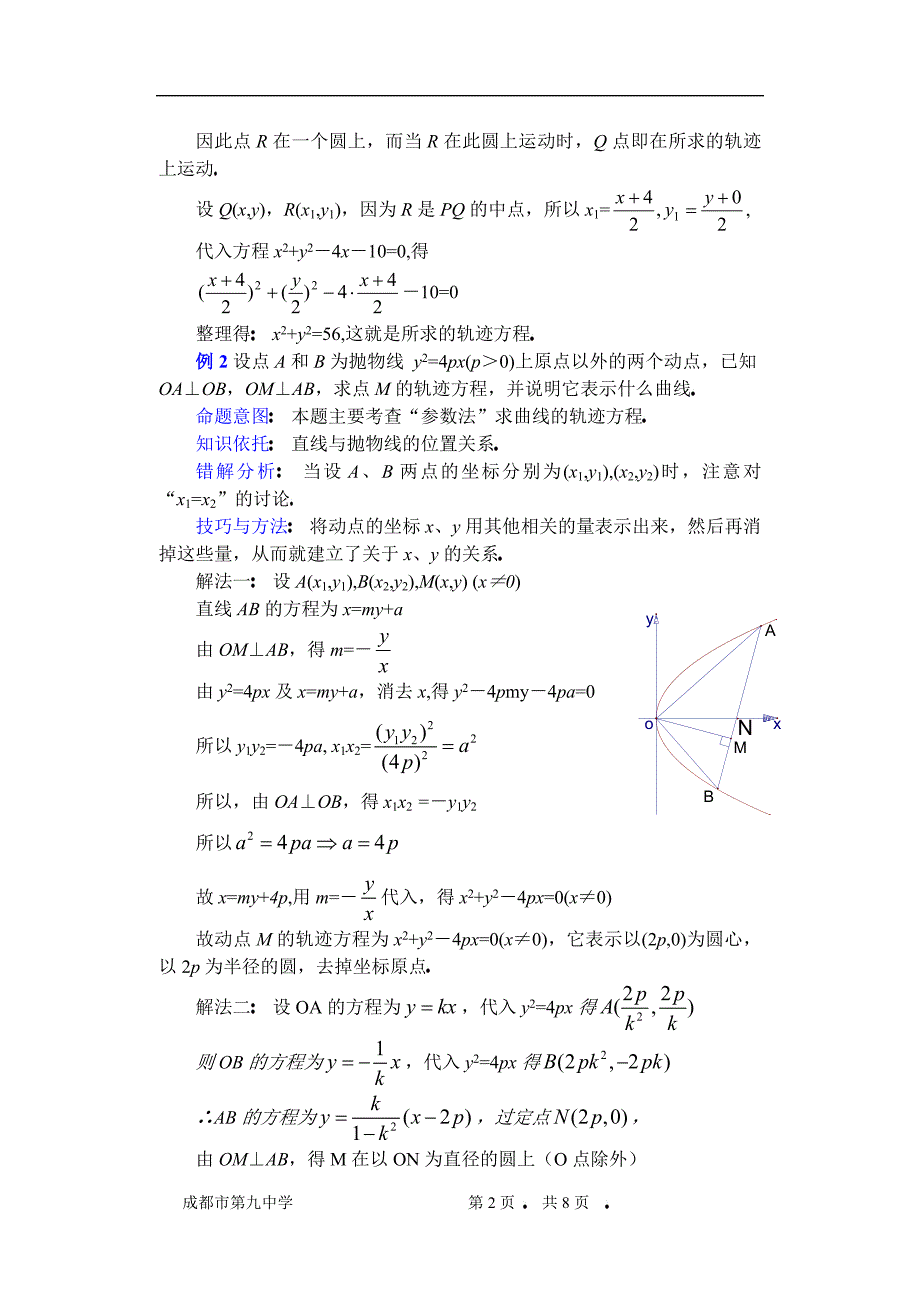 因此点 R 在一个圆上，而当 R 在此圆上运动时，Q 点即在所求的轨迹
上运动.
设 Q(x,y)，R(x₁,y₁)，因为 R 是 PQ 的中点，所以 x₁=\frac{x+4}{2}, y₁=\frac{y+0}{2},
代入方程 x²+y²－4x－10=0,得
(\frac{x+4}{2})²+(\frac{y}{2})²－4·\frac{x+4}{2}－10=0
整理得： x²+y²=56,这就是所求的轨迹方程.
例 2 设点 A 和 B 为抛物线 y²=4px(p＞0)上原点以外的两个动点，已知
OA⊥OB，OM⊥AB，求点 M 的轨迹方程，并说明它表示什么曲线.
命题意图： 本题主要考查“参数法”求曲线的轨迹方程.
知识依托： 直线与抛物线的位置关系.
错解分析： 当设 A、B 两点的坐标分别为(x₁,y₁),(x₂,y₂)时，注意对
“x₁=x₂”的讨论.
技巧与方法： 将动点的坐标 x、y 用其他相关的量表示出来，然后再消
掉这些量，从而就建立了关于 x、y 的关系.
解法一： 设 A(x₁,y₁),B(x₂,y₂),M(x,y) (x≠0)
直线 AB 的方程为 x=my+a
由 OM⊥AB，得 m=－\frac{y}{x}
由 y²=4px 及 x=my+a，消去 x,得 y²－4pmy－4pa=0
所以 y₁y₂=－4pa, x₁x₂=\frac{(y₁y₂)²}{(4p)²}=a²
所以，由 OA⊥OB，得 x₁x₂ =－y₁y₂
所以 a²=4pa⇒a=4p
故 x=my+4p,用 m=－\frac{y}{x}代入，得 x²+y²－4px=0(x≠0)
故动点 M 的轨迹方程为 x²+y²－4px=0(x≠0)，它表示以(2p,0)为圆心，
以 2p 为半径的圆，去掉坐标原点.
y
A
o
N
x
M
B
解法二： 设 OA 的方程为 y=kx，代入 y²=4px 得 A(\frac{2p}{k²},\frac{2p}{k})
则 OB 的方程为 y=－\frac{1}{k}x，代入 y²=4px 得 B(2pk²,－2pk)
∴AB 的方程为 y=\frac{k}{1－k²}(x－2p)，过定点 N(2p,0)，
由 OM⊥AB，得 M 在以 ON 为直径的圆上（O 点除外）
成都市第九中学 第 2 页 . 共 8 页 .